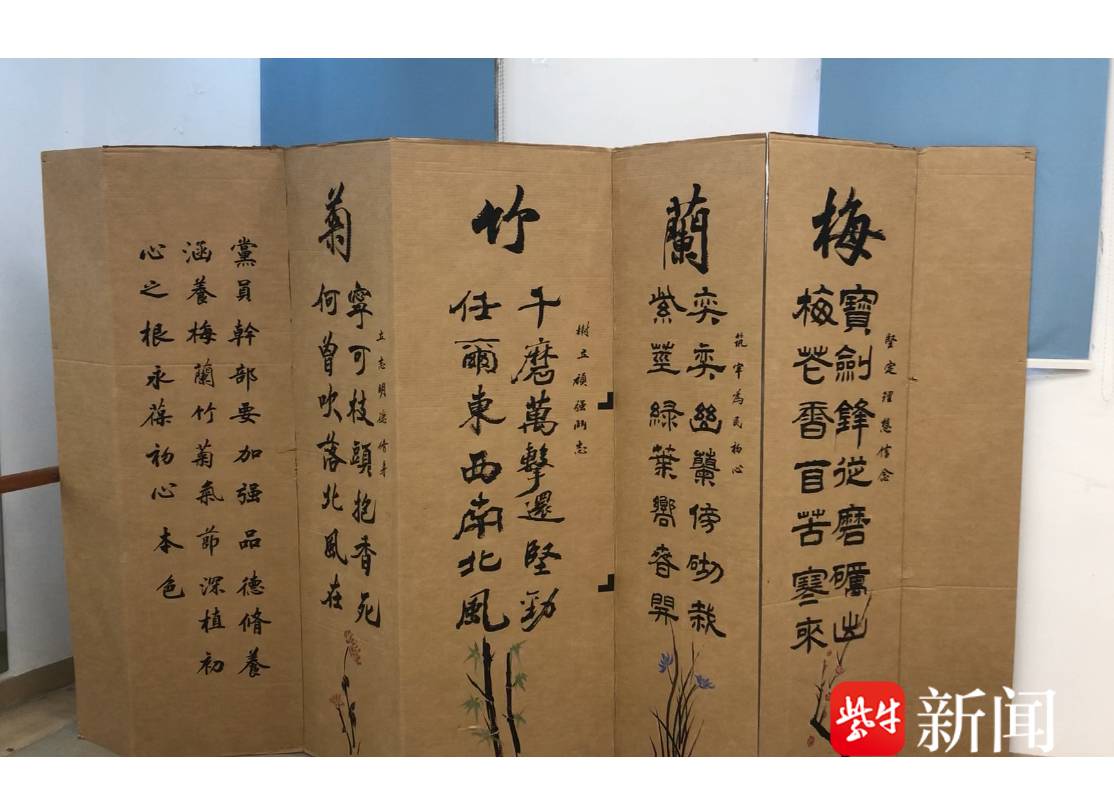 梅
堅定理想信念
寶劍鋒從磨礪出
梅花香自苦寒來
蘭
筑牢為民初心
奕奕幽蘭傍砌栽
紫莖綠葉嚮春開
竹
樹立頑强鬥志
千磨萬擊還堅勁
任爾東西南北風
菊
立志明德修身
寧可枝頭抱香死
何曾吹落北風在
黨員幹部要加强品德脩養
涵養梅蘭竹菊氣節深植初
心之根永葆初心本色
紫牛新闻